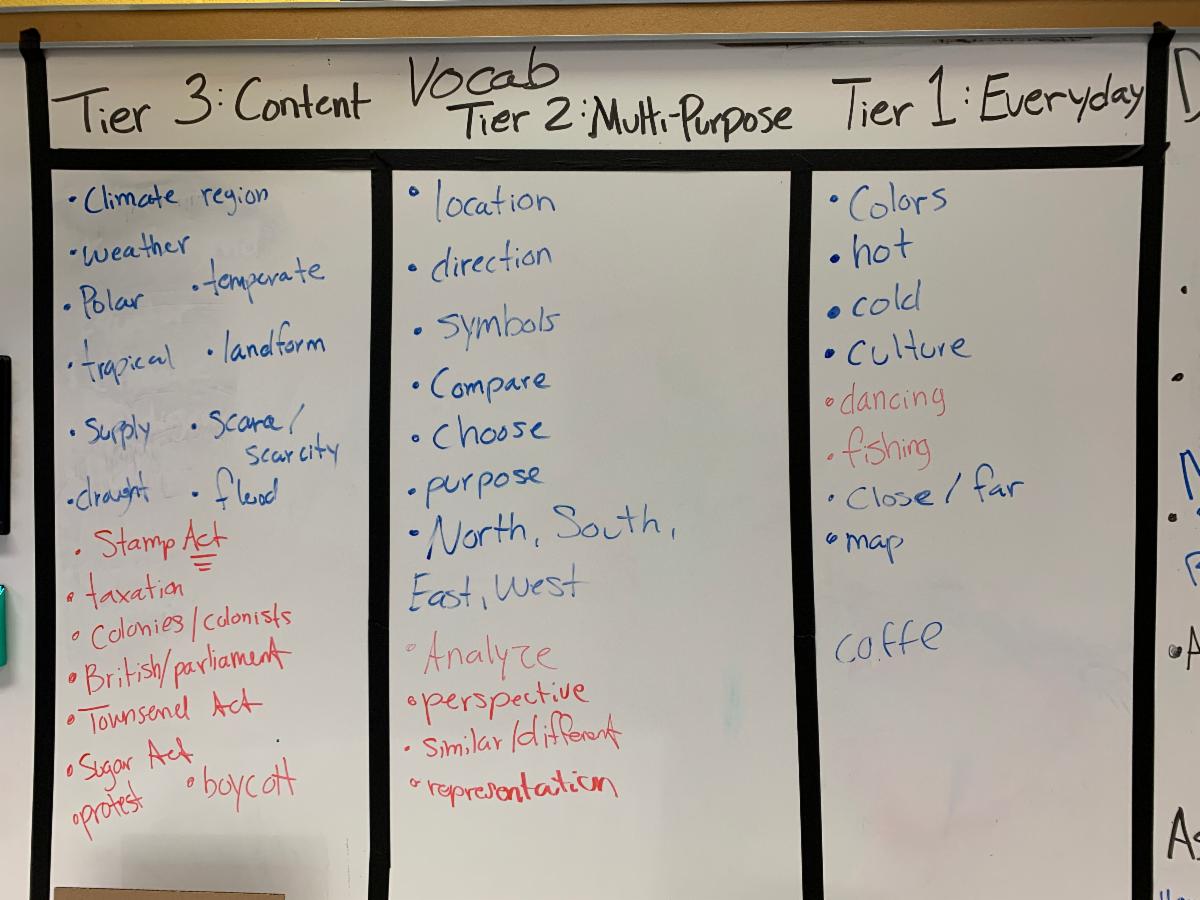 Vocab
Tier 3: Content
• Climate region
• weather
• Polar • temperate
• tropical • landform
• Supply • Scarce/
scarcity
• draught • flood
• Stamp Act
• taxation
• Colonies/colonists
• British/parliament
• Townsend Act
• Sugar Act
• protest • boycott
Tier 2: Multi-Purpose
• location
• direction
• symbols
• Compare
• Choose
• purpose
• North, South,
East, West
• Analyze
• perspective
• similar/different
• representation
Tier 1: Everyday
• Colors
• hot
• cold
• Culture
• dancing
• fishing
• Close/far
• map
coffe